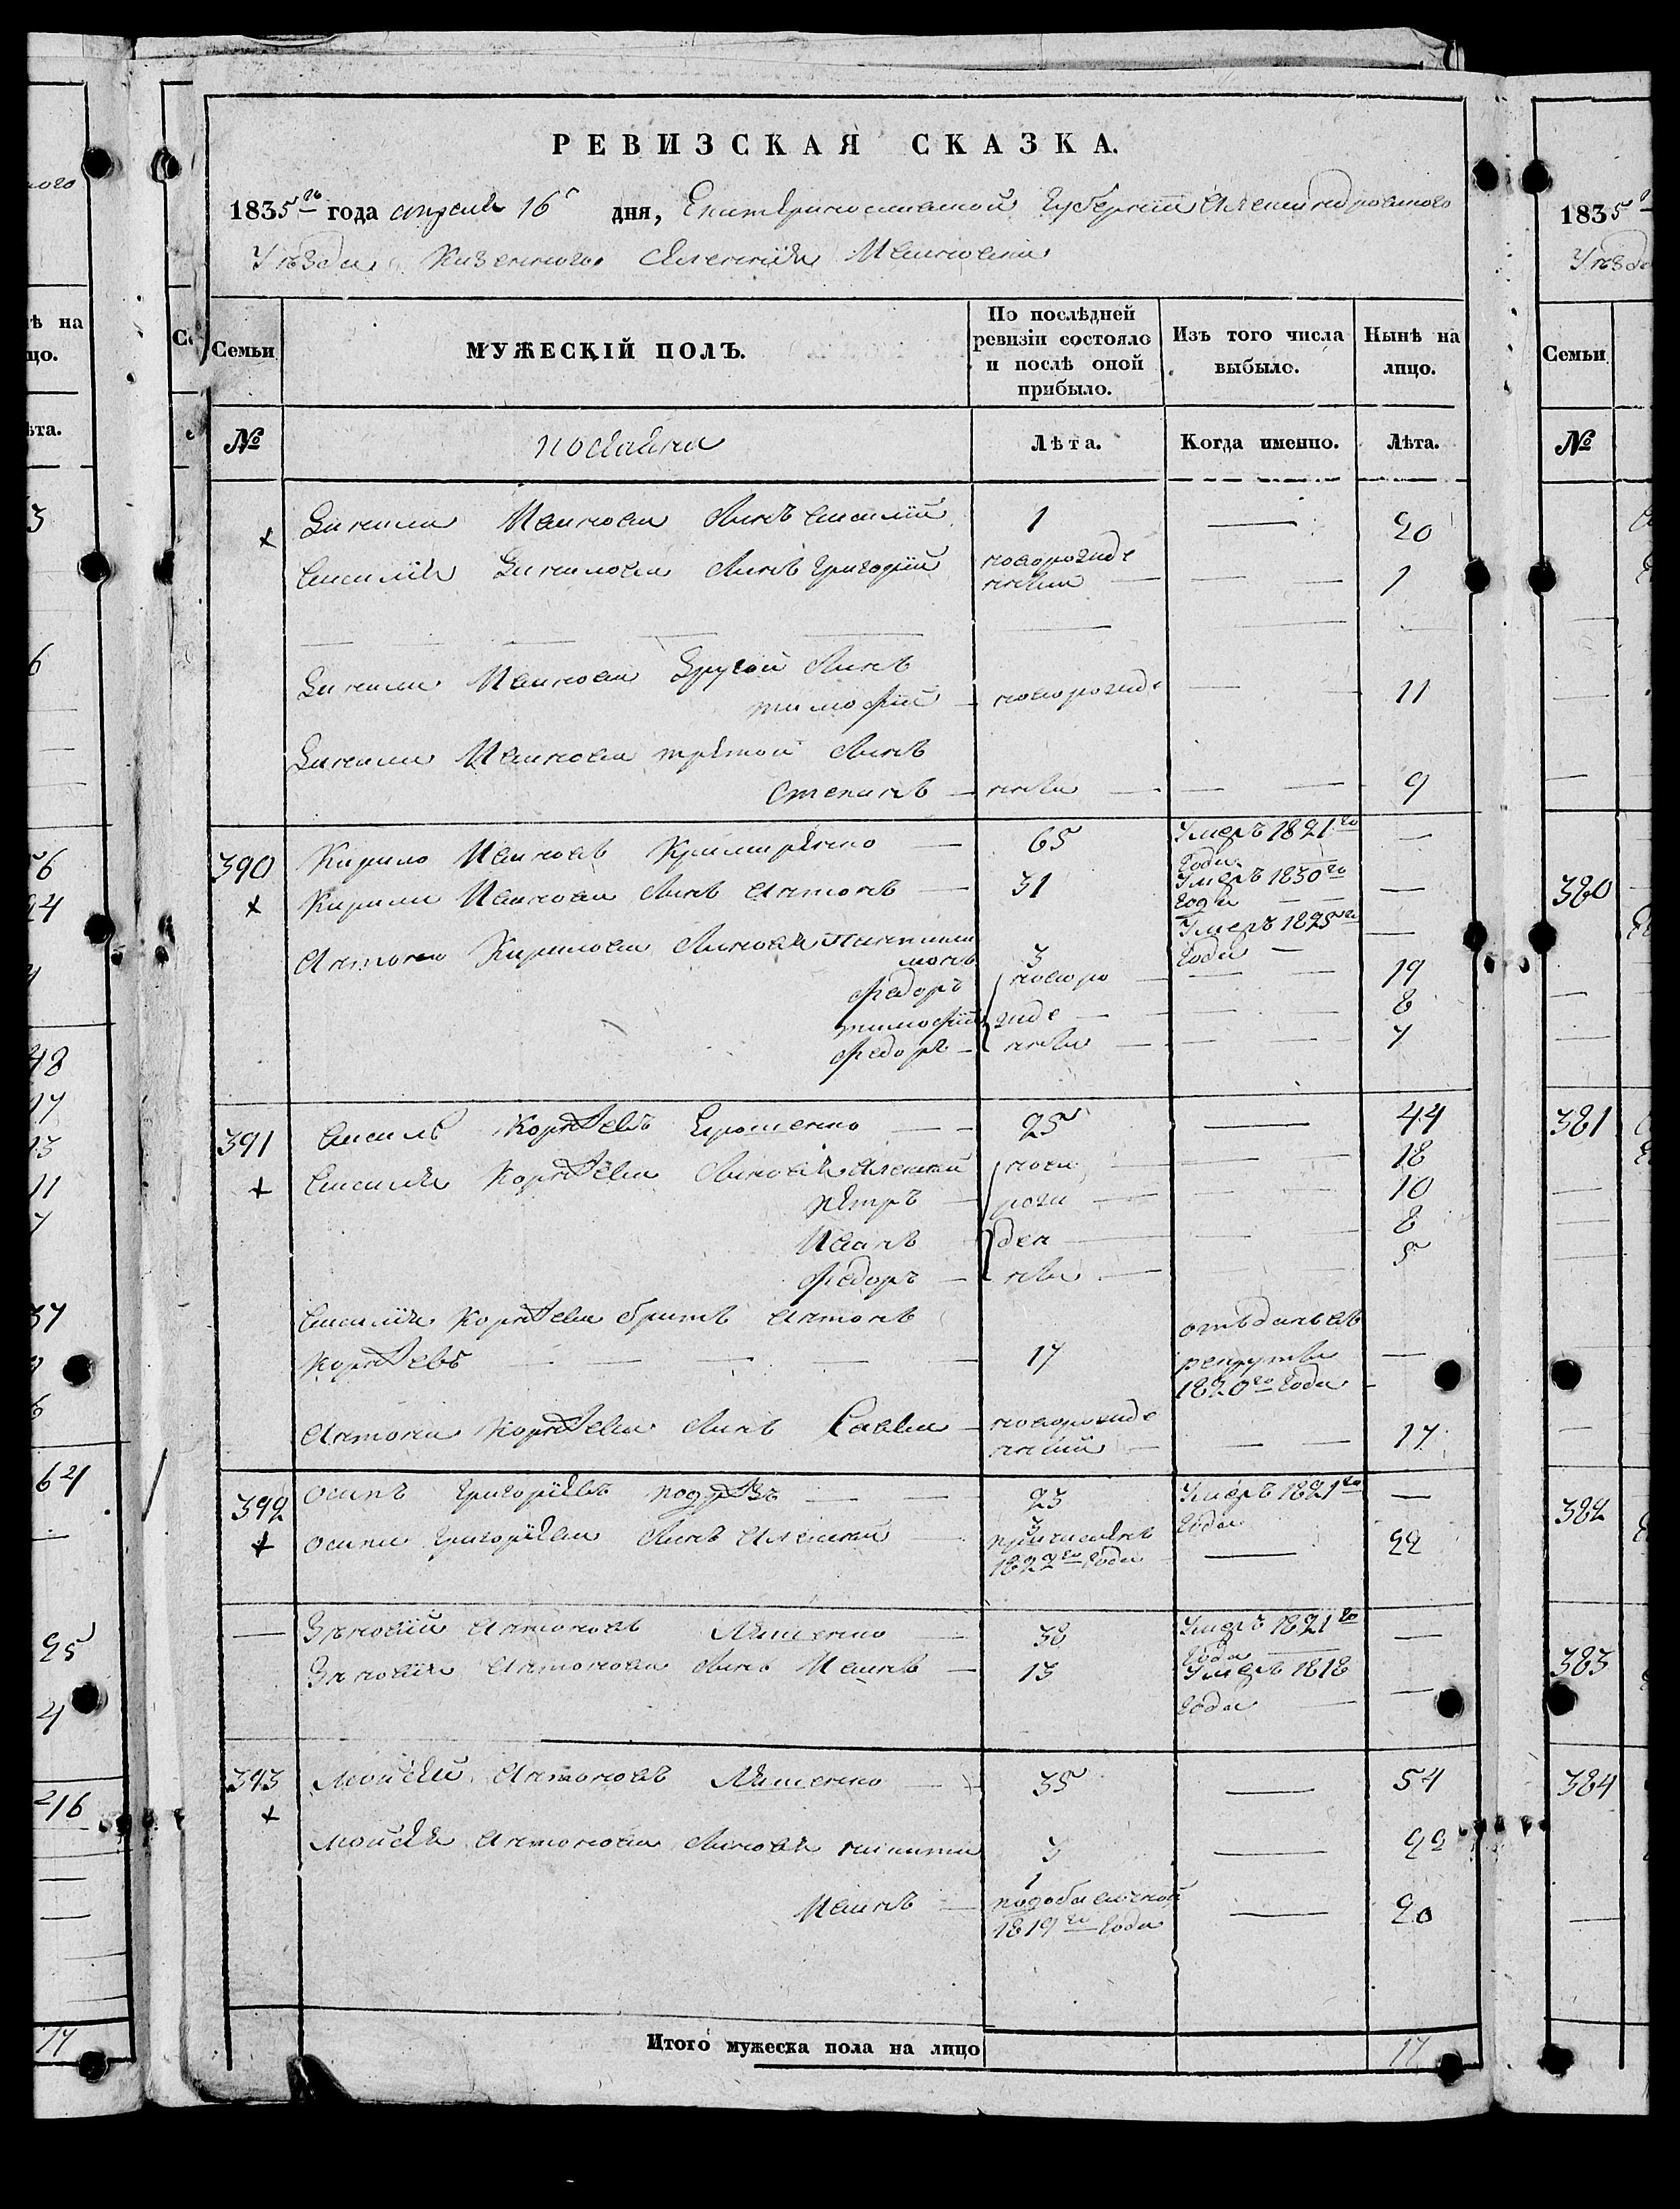 РЕВИЗСКАЯ СКАЗКА.
1835го года апреля 16 дня, Екатеринославской Губернии Александровского
Уезда Казенного селения Ивановки
Семьи
МУЖЕСКІЙ ПОЛЪ.
По послѣдней ревизіи состояло и послѣ оной прибыло.
Изъ того числа выбыло.
Нынѣ на лицо.
№
Лѣта.
Когда именно.
Лѣта.
Данила Иванова сынъ василий 1 — 20
василия Данилова сынъ григорий новорожде нные — 1
Данила Иванова другой сынъ
тимофей — новорожде — 11
Данила Иванова третой сынъ
степанъ — нные — 9
390 Кирило Ивановъ 65 Умеръ 1821го года —
Кирила Иванова сынъ антонъ — 31 Умеръ 1830го года —
антона Кирилова сыновя 3 Умеръ 1825го года —
федоръ новоро — 19
тимофей жде — 8
федоръ — нные — 7
391 василь Корнѣевъ Ерошенко — 25 — 44
василия Корнѣева сыновя алексей ново — 18
петръ рож — 10
Иванъ ден — 8
федоръ — ные — 5
василия Корнѣева братъ антонъ
Корнѣевъ — 17 отъданъ въ рекруты 1820го года —
антона Корнѣева сынъ Савва — новорожде нный — 17
392 осипъ григорьевъ — 23 Умеръ 1821го года —
осипа григорьева сынъ алексей 3 причисленъ 1822го года — 22
— Зѣновий антоновъ Ляшенко — 38 Умеръ 1821го года —
Зѣновия антонова сынъ Иванъ — 13 Умеръ 1818 года —
393 моисей антоновъ Ляшенко — 35 — 54
моисея антонова сыновя никита 3 — 22
Иванъ — 1 1819го года — 20
Итого мужеска пола на лицо 17
1835
Уезда
Семьи
№
380
381
382
383
384